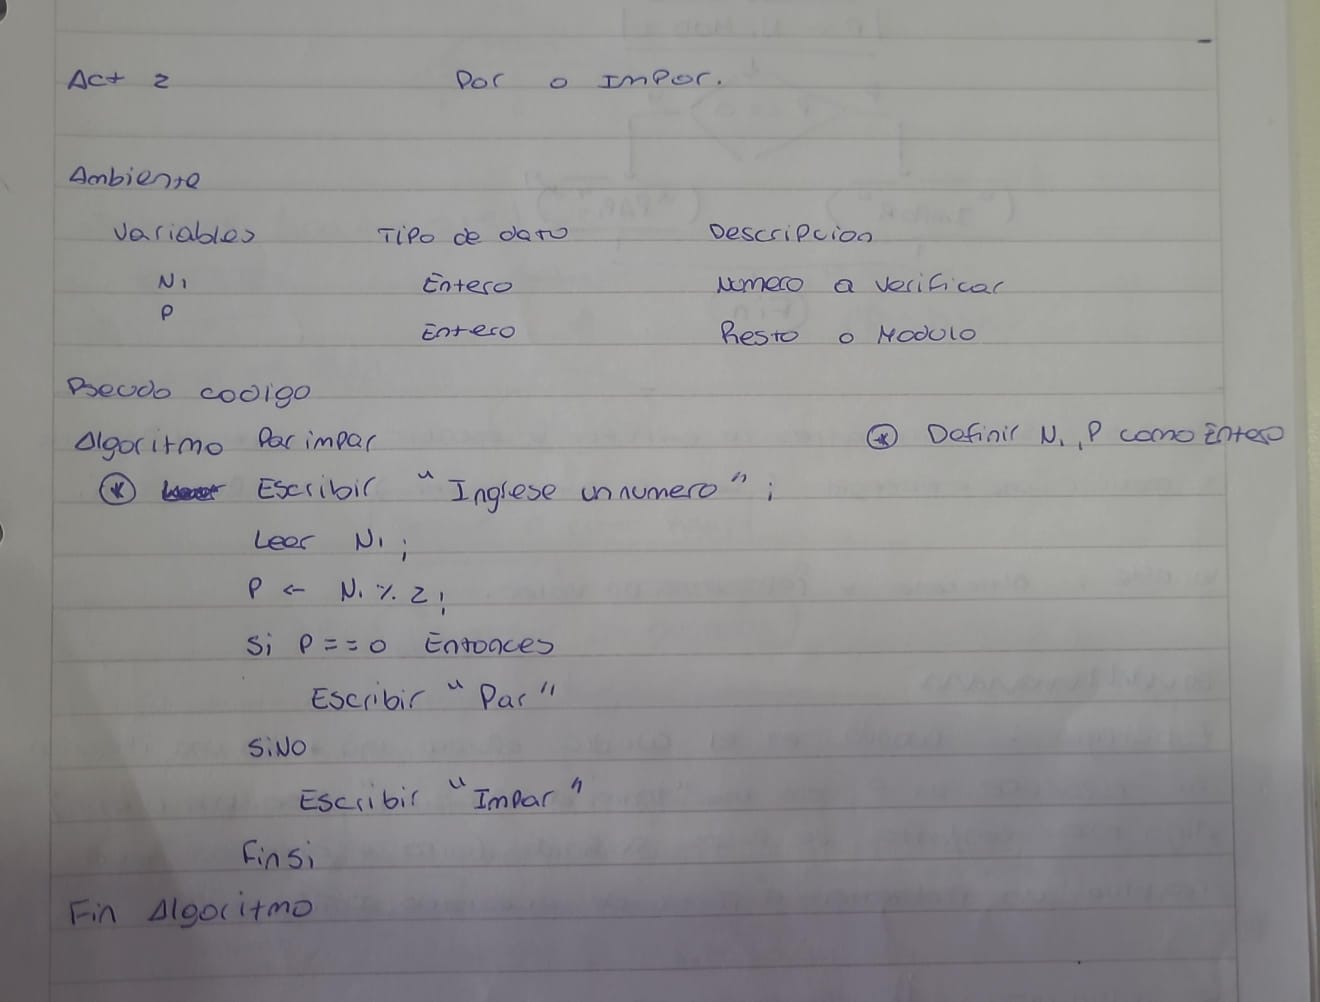 Act 2 Par o Impar.
Ambiente
Variables Tipo de dato Descripcion
N1 Entero Numero a verificar
P Entero Resto o Modulo
Pseudo codigo
Algoritmo Par impar ⊛ Definir N1, P como Entero
⊛ Escribir "Ingrese un numero";
Leer N1;
P ← N1 % 2;
Si P == 0 Entonces
Escribir "Par"
SiNo
Escribir "Impar"
Finsi
Fin Algoritmo